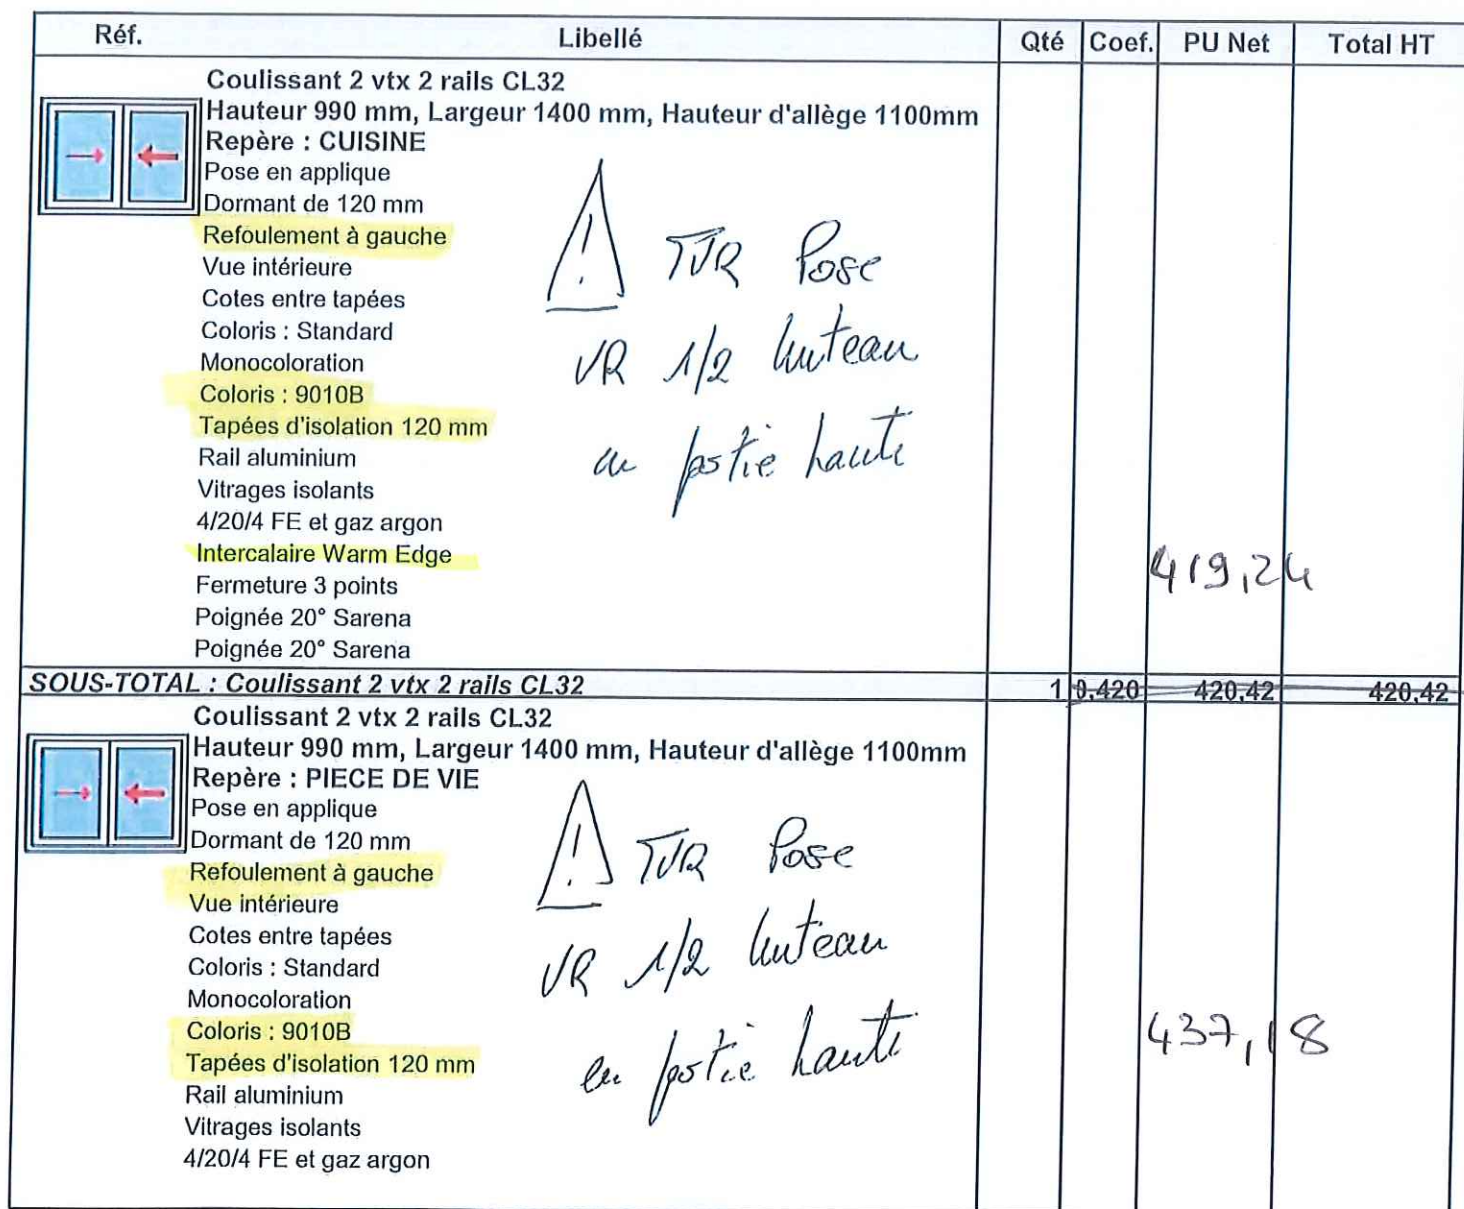 Réf. Libellé Qté Coef. PU Net Total HT
Coulissant 2 vtx 2 rails CL32
Hauteur 990 mm, Largeur 1400 mm, Hauteur d'allège 1100mm
Repère : CUISINE
Pose en applique
Dormant de 120 mm
Refoulement à gauche
Vue intérieure
Cotes entre tapées
Coloris : Standard
Monocoloration
Coloris : 9010B
Tapées d'isolation 120 mm
Rail aluminium
Vitrages isolants
4/20/4 FE et gaz argon
Intercalaire Warm Edge
Fermeture 3 points
Poignée 20° Sarena
Poignée 20° Sarena
! TVR Pose
VR 1/2 linteau
en partie haute
419,24
SOUS-TOTAL : Coulissant 2 vtx 2 rails CL32 1 0,420 420,42 420,42
Coulissant 2 vtx 2 rails CL32
Hauteur 990 mm, Largeur 1400 mm, Hauteur d'allège 1100mm
Repère : PIECE DE VIE
Pose en applique
Dormant de 120 mm
Refoulement à gauche
Vue intérieure
Cotes entre tapées
Coloris : Standard
Monocoloration
Coloris : 9010B
Tapées d'isolation 120 mm
Rail aluminium
Vitrages isolants
4/20/4 FE et gaz argon
! TVR Pose
VR 1/2 linteau
en partie haute
437,18